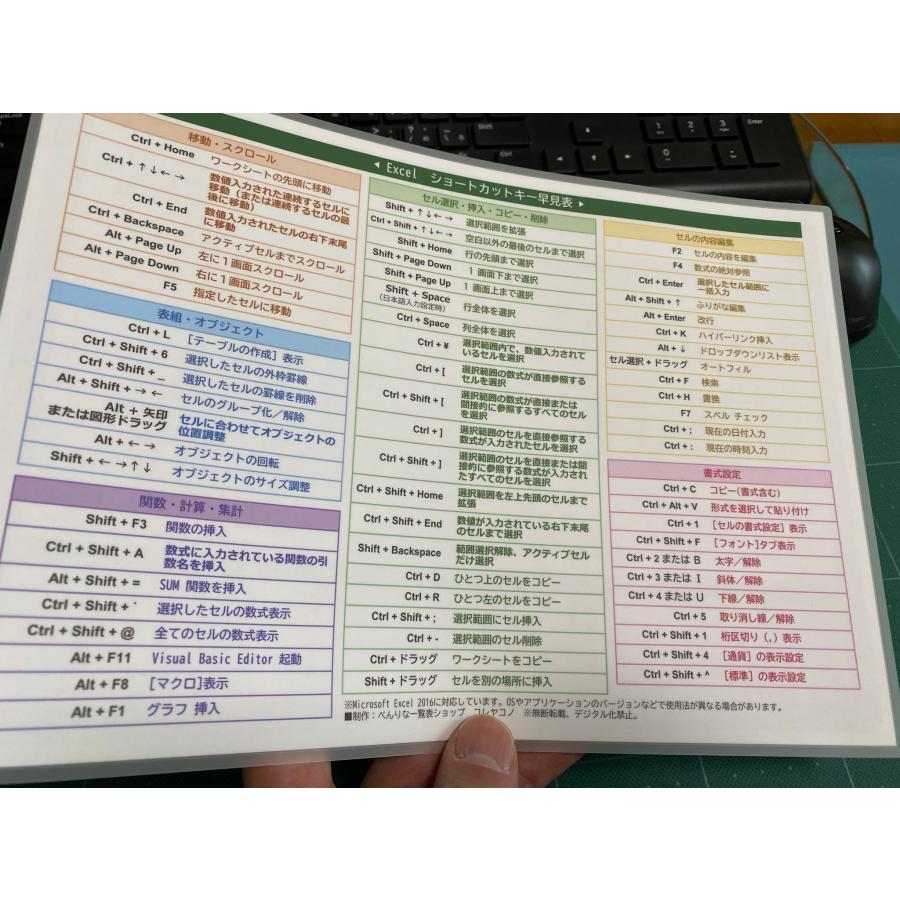 ◀ Excel ショートカットキー早見表 ▶
移動・スクロール
Ctrl + Home ワークシートの先頭に移動
Ctrl + ↑↓←→ 数値入力された連続するセルに
移動（または連続するセルの最
後に移動）
Ctrl + End 数値入力されたセルの右下末尾
に移動
Ctrl + Backspace アクティブセルまでスクロール
Alt + Page Up 左に1画面スクロール
Alt + Page Down 右に1画面スクロール
F5 指定したセルに移動
表組・オブジェクト
Ctrl + L [テーブルの作成] 表示
Ctrl + Shift + 6 選択したセルの外枠罫線
Ctrl + Shift + _ 選択したセルの罫線を削除
Alt + Shift + → ← セルのグループ化／解除
Alt + 矢印
または図形ドラッグ セルに合わせてオブジェクトの
位置調整
Alt + ← → オブジェクトの回転
Shift + ← →↑↓ オブジェクトのサイズ調整
関数・計算・集計
Shift + F3 関数の挿入
Ctrl + Shift + A 数式に入力されている関数の引
数名を挿入
Alt + Shift + = SUM 関数を挿入
Ctrl + Shift + ` 選択したセルの数式表示
Ctrl + Shift + @ 全てのセルの数式表示
Alt + F11 Visual Basic Editor 起動
Alt + F8 [マクロ]表示
Alt + F1 グラフ 挿入
セル選択・挿入・コピー・削除
Shift + ↑↓←→ 選択範囲を拡張
Ctrl + Shift + ↑↓←→ 空白以外の最後のセルまで選択
Shift + Home 行の先頭まで選択
Shift + Page Down 1 画面下まで選択
Shift + Page Up 1 画面上まで選択
Shift + Space
(日本語入力設定時) 行全体を選択
Ctrl + Space 列全体を選択
Ctrl + ¥ 選択範囲内で、数値入力されて
いるセルを選択
Ctrl + [ 選択範囲の数式が直接参照する
セルを選択
Ctrl + Shift + [ 選択範囲の数式が直接または
間接的に参照するすべてのセル
を選択
Ctrl + ] 選択範囲のセルを直接参照する
数式が入力されたセルを選択
Ctrl + Shift + ] 選択範囲のセルを直接または間
接的に参照する数式が入力され
たすべてのセルを選択
Ctrl + Shift + Home 選択範囲を左上先頭のセルまで
拡張
Ctrl + Shift + End 数値が入力されている右下末尾
のセルまで選択
Shift + Backspace 範囲選択解除、アクティブセル
だけ選択
Ctrl + D ひとつ上のセルをコピー
Ctrl + R ひとつ左のセルをコピー
Ctrl + Shift + ; 選択範囲にセル挿入
Ctrl + - 選択範囲のセル削除
Ctrl + ドラッグ ワークシートをコピー
Shift + ドラッグ セルを別の場所に挿入
セルの内容編集
F2 セルの内容を編集
F4 数式の絶対参照
Ctrl + Enter 選択したセル範囲に
一括入力
Alt + Shift + ↑ ふりがな編集
Alt + Enter 改行
Ctrl + K ハイパーリンク挿入
Alt + ↓ ドロップダウンリスト表示
セル選択 + ドラッグ オートフィル
Ctrl + F 検索
Ctrl + H 置換
F7 スペル チェック
Ctrl + ; 現在の日付入力
Ctrl + : 現在の時刻入力
書式設定
Ctrl + C コピー（書式含む）
Ctrl + Alt + V 形式を選択して貼り付け
Ctrl + 1 [セルの書式設定] 表示
Ctrl + Shift + F [フォント]タブ表示
Ctrl + 2 または B 太字／解除
Ctrl + 3 または I 斜体／解除
Ctrl + 4 または U 下線／解除
Ctrl + 5 取り消し線／解除
Ctrl + Shift + 1 桁区切り（,）表示
Ctrl + Shift + 4 [通貨] の表示設定
Ctrl + Shift + ^ [標準] の表示設定
※Microsoft Excel 2016に対応しています。OSやアプリケーションのバージョンなどで使用法が異なる場合があります。
■制作：べんりな一覧表ショップ コレヤコノ ※無断転載、デジタル化禁止。